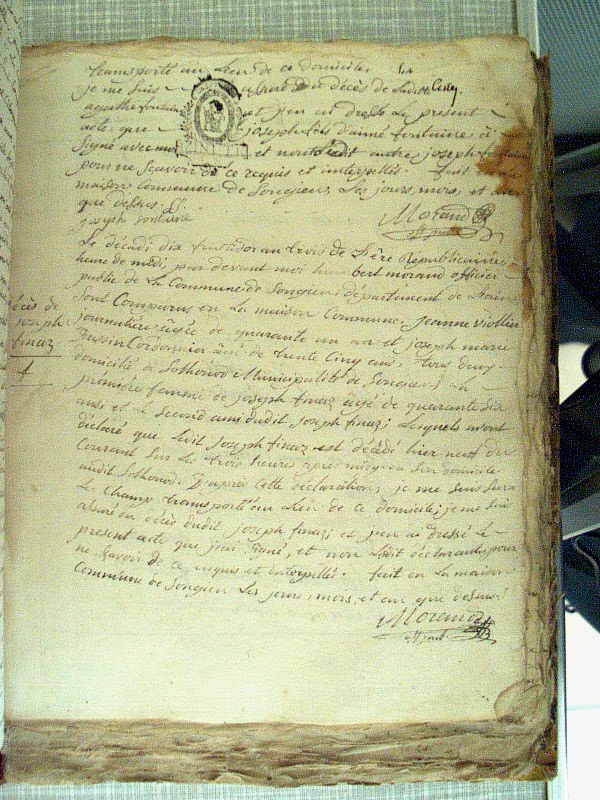 transporté au Lieu de ce domicile
je me suis assuré du décès de Ladite
agathe fontaine et j'en ai dressé Le présent
acte, que joseph fils d'aimé fontaine a
Signé avec moi et non Ledit autre joseph
pour ne Scavoir de ce requis et interpellé. fait
maison Commune de Songieu, Les jours, mois, et an
que dessus.
joseph fontaine
Morand
off. publ.
Le décadi dix fructidor an trois de L'ère Républicaine
heure de midi, par devant moi humbert morand officier
public de La Commune de Songieu, département de L'ain
Sont Comparus en La maison Commune, jeanne viollier
journalière âgée de quarante un an et joseph marie
Cordonnier âgé de trente Cinq ans, tous deux
domiciliés à Sothonod Municipalité de Songieu, La
première femme de joseph finaz âgé de quarante six
ans et Le Second ami dudit joseph finaz; Lesquels m'ont
déclaré que Ledit joseph finaz est décédé hier neuf du
Courant Sur Les trois heures après midy en Son domicile
audit Sothonod. D'après Cette déclaration, je me Suis Sur
Le Champ transporté au Lieu de ce domicile; je me Suis
assuré du décès dudit joseph finaz et j'en ai dressé Le
présent acte que j'ai Signé, et non Lesdits déclarants, pour
ne Savoir de ce requis et interpellés. fait en La maison
Commune de Songieu Les jour, mois, et an que dessus.
Morand
off. publ.
décès de
joseph
finaz
1